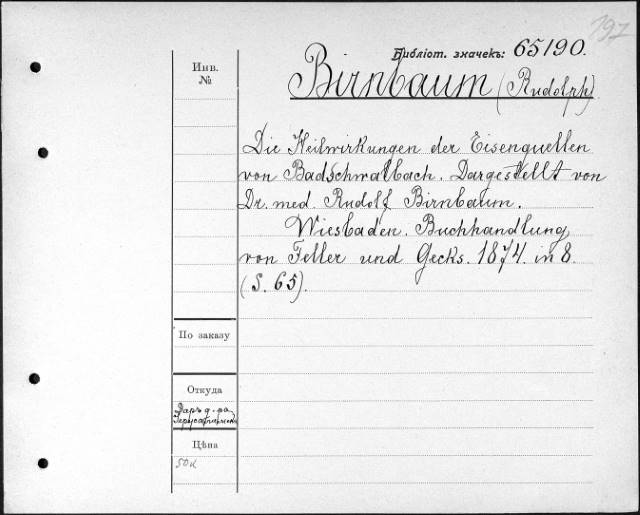 197
Библіот. значекъ: 65190.
Birnbaum (Rudolph)
Инв.
№
Die Heilwirkungen der Eisenquellen
von Badschwalbach. Dargestellt von
Dr. med. Rudolf Birnbaum.
Wiesbaden. Buchhandlung
von Feller und Gecks. 1874. in 8.
(S. 65).
По заказу
Откуда
Даръ д-ра
Цѣна
50к